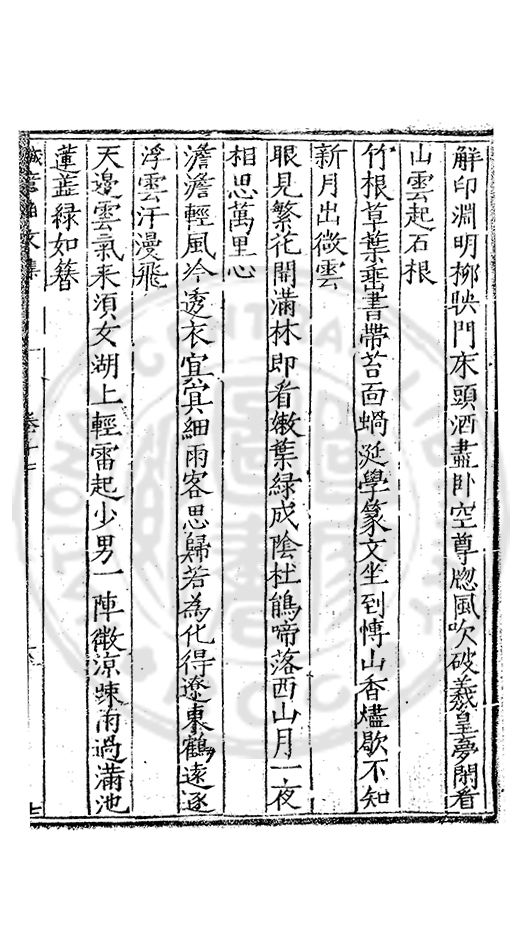 解印淵明柳映門床頭酒盡卧空尊窓風吹破羲皇夢閑看
山雲起石根
竹根草葉垂書帶苔面蝸涎學篆文坐到慱山香燼歇不知
新月出微雲
眼見繁花開滿林即看嫩葉緑成陰杜鵑啼落西山月一夜
相思萬里心
澹澹輕風冷透衣冥冥細雨客思歸若為化得遼東鶴遠逐
浮雲汗漫飛
天邊雲氣来湏女湖上輕雷起少男一陣微涼踈雨過滿池
蓮蓋緑如簪
誠意伯文集
卷十七